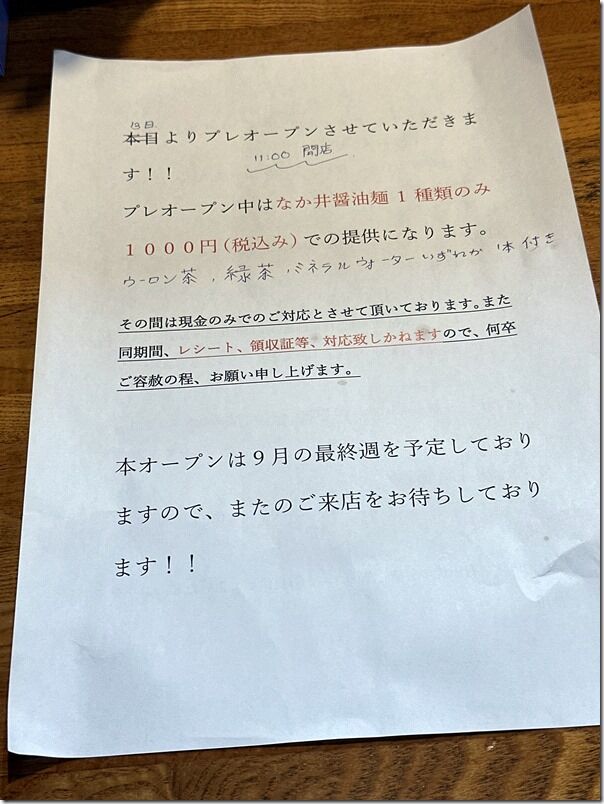 19日
本日よりプレオープンさせていただきま
11:00 開店
す！！
プレオープン中はなか井醤油麺１種類のみ
１０００円(税込み)での提供になります。
ウーロン茶，緑茶，ミネラルウォーターいずれか 1本 付き
その間は現金のみでのご対応とさせて頂いております。また
同期間、レシート、領収証等、対応致しかねますので、何卒
ご容赦の程、お願い申し上げます。
本オープンは９月の最終週を予定しており
ますので、またのご来店をお待ちしており
ます！！